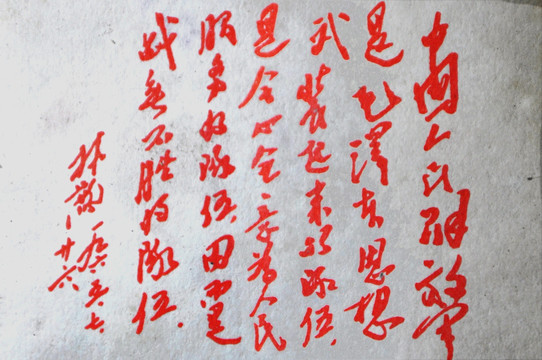 中国人民解放军
是毛澤东思想
武裝起来的隊伍，
是全心全意为人民
服务的隊伍，因而是
战无不胜的隊伍．
林彪 一九六五、七、
廿六